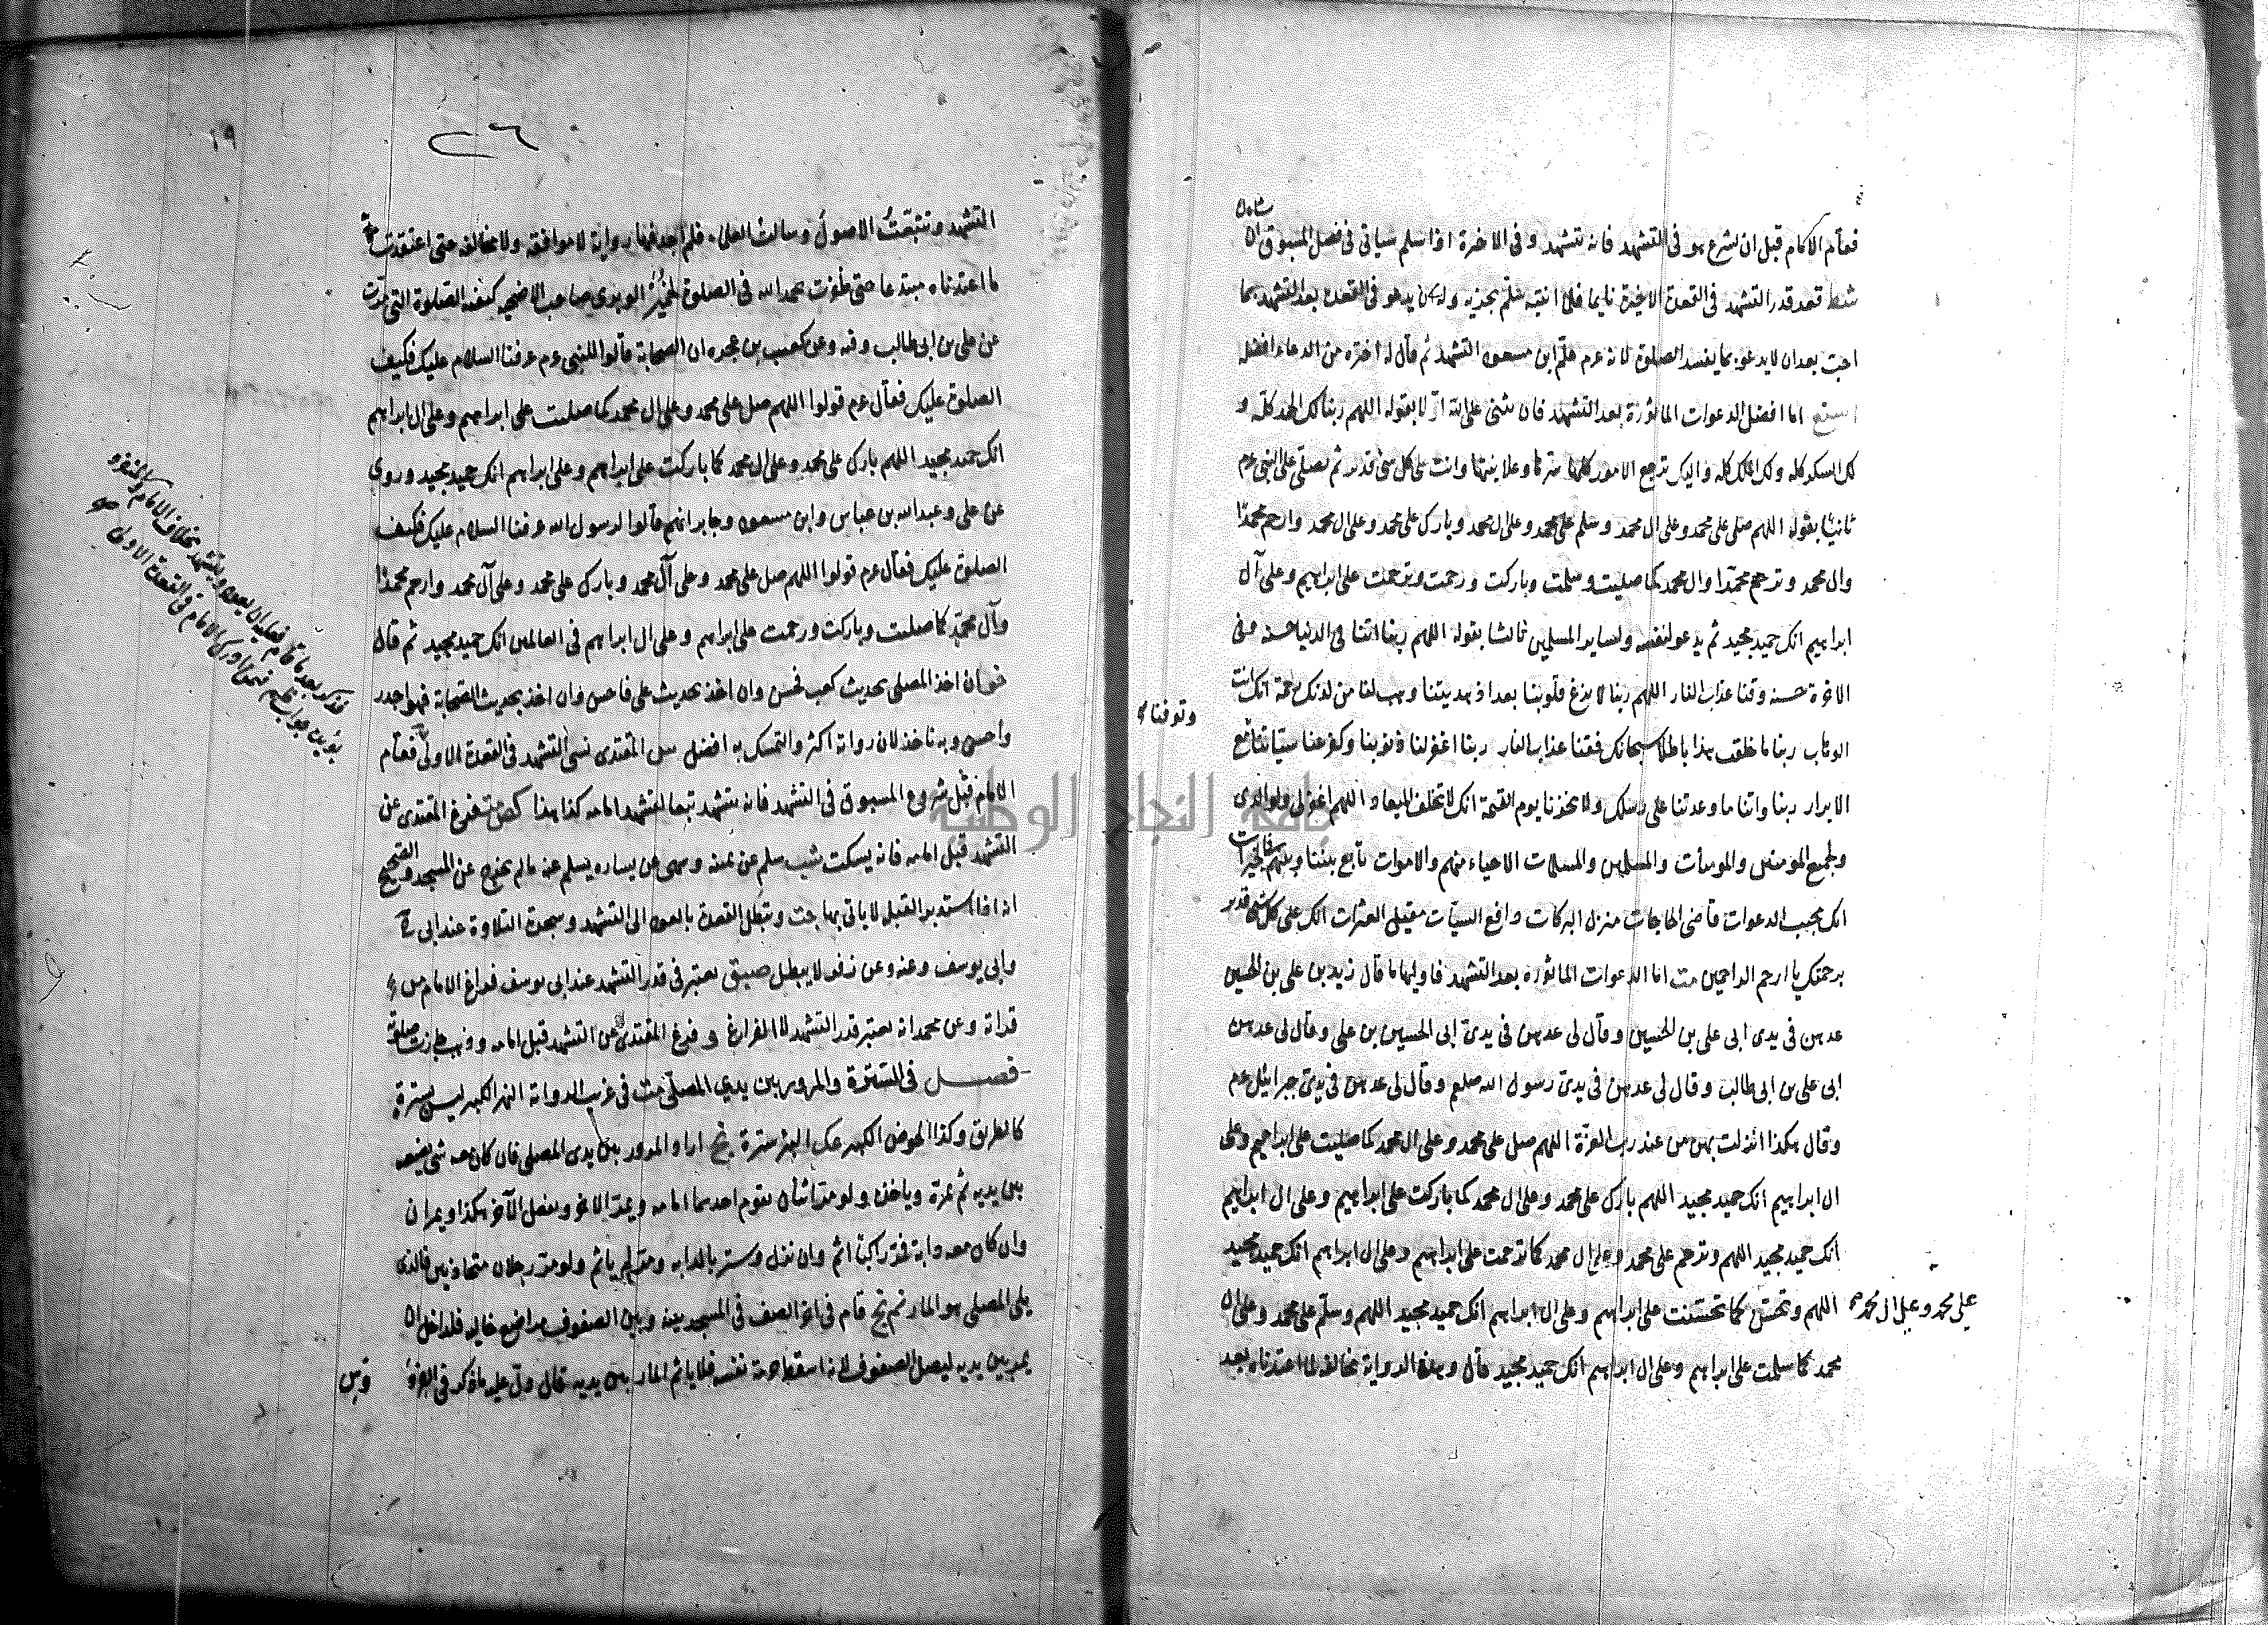 فقام الامام قبل ان يشرع هو فى التشهد فانه يتشهد وفى الاخرة اذا سلم سياتى فى فصل المسبوق ان شاء الله
قعد قدر التشهد فى القعدة الاخيرة نايما فلما انتبه سلم يجزيه وله ان يدعو فى القعدة بعد التشهد بما
احب بعد ان لا يدعو بما يفسد الصلوة لانه عم علم ابن مسعود التشهد ثم قال له اختر من الدعاء افضله
اما افضل الدعوات الماثورة بعد التشهد فان يثنى على الله اولا بقوله اللهم ربنا لك الحمد كله و
لك الشكر كله ولك الملك كله واليك ترجع الامور كلها سرها وعلانيتها وانت على كل شئ قدير ثم يصلى على النبى عم
ثانيا بقوله اللهم صلى على محمد وعلى ال محمد وسلم على محمد وعلى ال محمد وبارك على محمد وعلى ال محمد وارحم محمدا
وال محمد وترحم محمدا وال محمد كما صليت وسلمت وباركت ورحمت وترحمت على ابراهيم وعلى آل
ابراهيم انك حميد مجيد ثم يدعو لنفسه ولساير المسلمين ثالثا بقوله اللهم ربنا اتنا فى الدنيا حسنة وفى
الاخرة حسنة وقنا عذاب النار اللهم ربنا لا تزغ قلوبنا بعد اذ هديتنا وهب لنا من لدنك رحمة انك انت
الوهاب ربنا ما خلقت هذا باطلا سبحانك فقنا عذاب النار ربنا اغفر لنا ذنوبنا وكفر عنا سيئاتنا مع
وتوفنا
الابرار ربنا واتنا ما وعدتنا على رسلك ولا تخزنا يوم القيمة انك لا تخلف الميعاد اللهم اغفر لى ولوالدى
ولجميع المؤمنين والمؤمنات والمسلمين والمسلمات الاحياء منهم والاموات تابع بيننا وبينهم بالخيرات
انك مجيب الدعوات قاضى الحاجات منزل البركات دافع السيئات مقيل العثرات انك على كل شئ قدير
برحمتك يا ارحم الراحمين مت اما الدعوات الماثورة بعد التشهد فاوليها ما قال زيد بن على بن الحسين
عدهن فى يدى ابى على بن الحسين وقال لى عدهن فى يدى ابى الحسين بن على وقال لى عدهن
ابى على بن ابى طالب وقال لى عدهن فى يدى رسول الله صلعم وقال لى عدهن فى يدى جبرائيل عم
وقال هكذا انزلت بهن من عند رب العزة اللهم صل على محمد وعلى ال محمد كما صليت على ابراهيم وعلى
ال ابراهيم انك حميد مجيد اللهم بارك على محمد وعلى ال محمد كما باركت على ابراهيم وعلى ال ابراهيم
انك حميد مجيد اللهم وترحم على محمد وعلى ال محمد كما ترحمت على ابراهيم وعلى ال ابراهيم انك حميد مجيد
على محمد وعلى ال محمد
اللهم وتحنن كما تحننت على ابراهيم وعلى ال ابراهيم انك حميد مجيد اللهم وسلم على محمد وعلى ال
محمد كما سلمت على ابراهيم وعلى ال ابراهيم انك حميد مجيد قال وهذه الرواية مخالف لما اعتدناه بعد
١٩
٢٦
التشهد وتتبعت الاصول وسالت العلماء فلم اجد فيها رواية لا موافقة ولا مخالفة حتى اعتقدت
ما اعتدناه مبتدعا حتى ظفرت بحمد الله فى الصلوة الوبرى صاحب الاضحية كيفية الصلوة التى مرت
عن على بن ابى طالب وفيه وعن كعب بن عجره ان الصحابة قالوا للنبى عم عرفنا السلام عليك فكيف
الصلوة عليك فقال عم قولوا اللهم صل على محمد وعلى ال محمد كما صليت على ابراهيم وعلى ال ابراهيم
انك حميد مجيد اللهم بارك على محمد وعلى ال محمد كما باركت على ابراهيم وعلى ابراهيم انك حميد مجيد وروى
عن على وعبد الله بن عباس وابن مسعود وجابر انهم قالوا لرسول الله عرفنا السلام عليك فكيف
الصلوة عليك فقال عم قولوا اللهم صل على محمد وعلى آل محمد وبارك على محمد وعلى آل محمد وارحم محمدا
وآل محمد كما صليت وباركت ورحمت على ابراهيم وعلى ال ابراهيم فى العالمين انك حميد مجيد ثم قال
ان اخذ المصلى بحديث كعب فحسن وان اخذ بحديث على فاحسن وان اخذ بحديث الصحابة فهو اجدر
وأحسن وبه ناخذ لان رواته اكثر والتمسك به افضل المقتدى نسى التشهد فى القعدة الاولى فقام
الامام قبل شروع المسبوق فى التشهد فانه يتشهد تبعا لتشهد امامه كذا هذا فرغ المقتدى من
التشهد قبل امامه فانه يسكت سلم عن يمينه وسهى عن يساره يسلم عنه مالم يخرج عن المسجد والصحيح
انه اذا استدبر القبلة لا ياتى بها وتبطل القعدة بالعود الى التشهد وسجدة التلاوة عند ابى
وابى يوسف وعنه وعن زفر لا يبطل يعتبر فى قدر التشهد عند ابى يوسف فراغ الامام من
قراته وعن محمد انه يعتبر قدر التشهد لا الفراغ وفرغ المقتدى من التشهد قبل امامه وذهب جازت صلوته
فصل فى السترة والمرور بين يدى المصلى مت فى غريب الرواية النهر الكبير ليس بسترة
كالطريق وكذا الحوض الكبير عك البئر سترة اراد المرور بين يدى المصلى فان كان معه شئ يضعه
بين يديه ثم يمر وياخذه ولو مر اثنان يقوم احدهما امامه ويمر الاخر ويفعل الآخر هكذا ويمران
وان كان معه دابة فمر راكبا اثم وان نزل وستر بالدابه ومر لم ياثم ولو مر رجلان متحاذيين فالذى
يلى المصلى هو المار قام فى اخر الصف فى المسجد بينه وبين الصفوف مواضع خاليه فللداخل ان
يمر بين يديه ليصل الصفوف لانه اسقط حرمة نفسه فلا ياثم المار بين يديه قال دل عليه ما ذكر فى